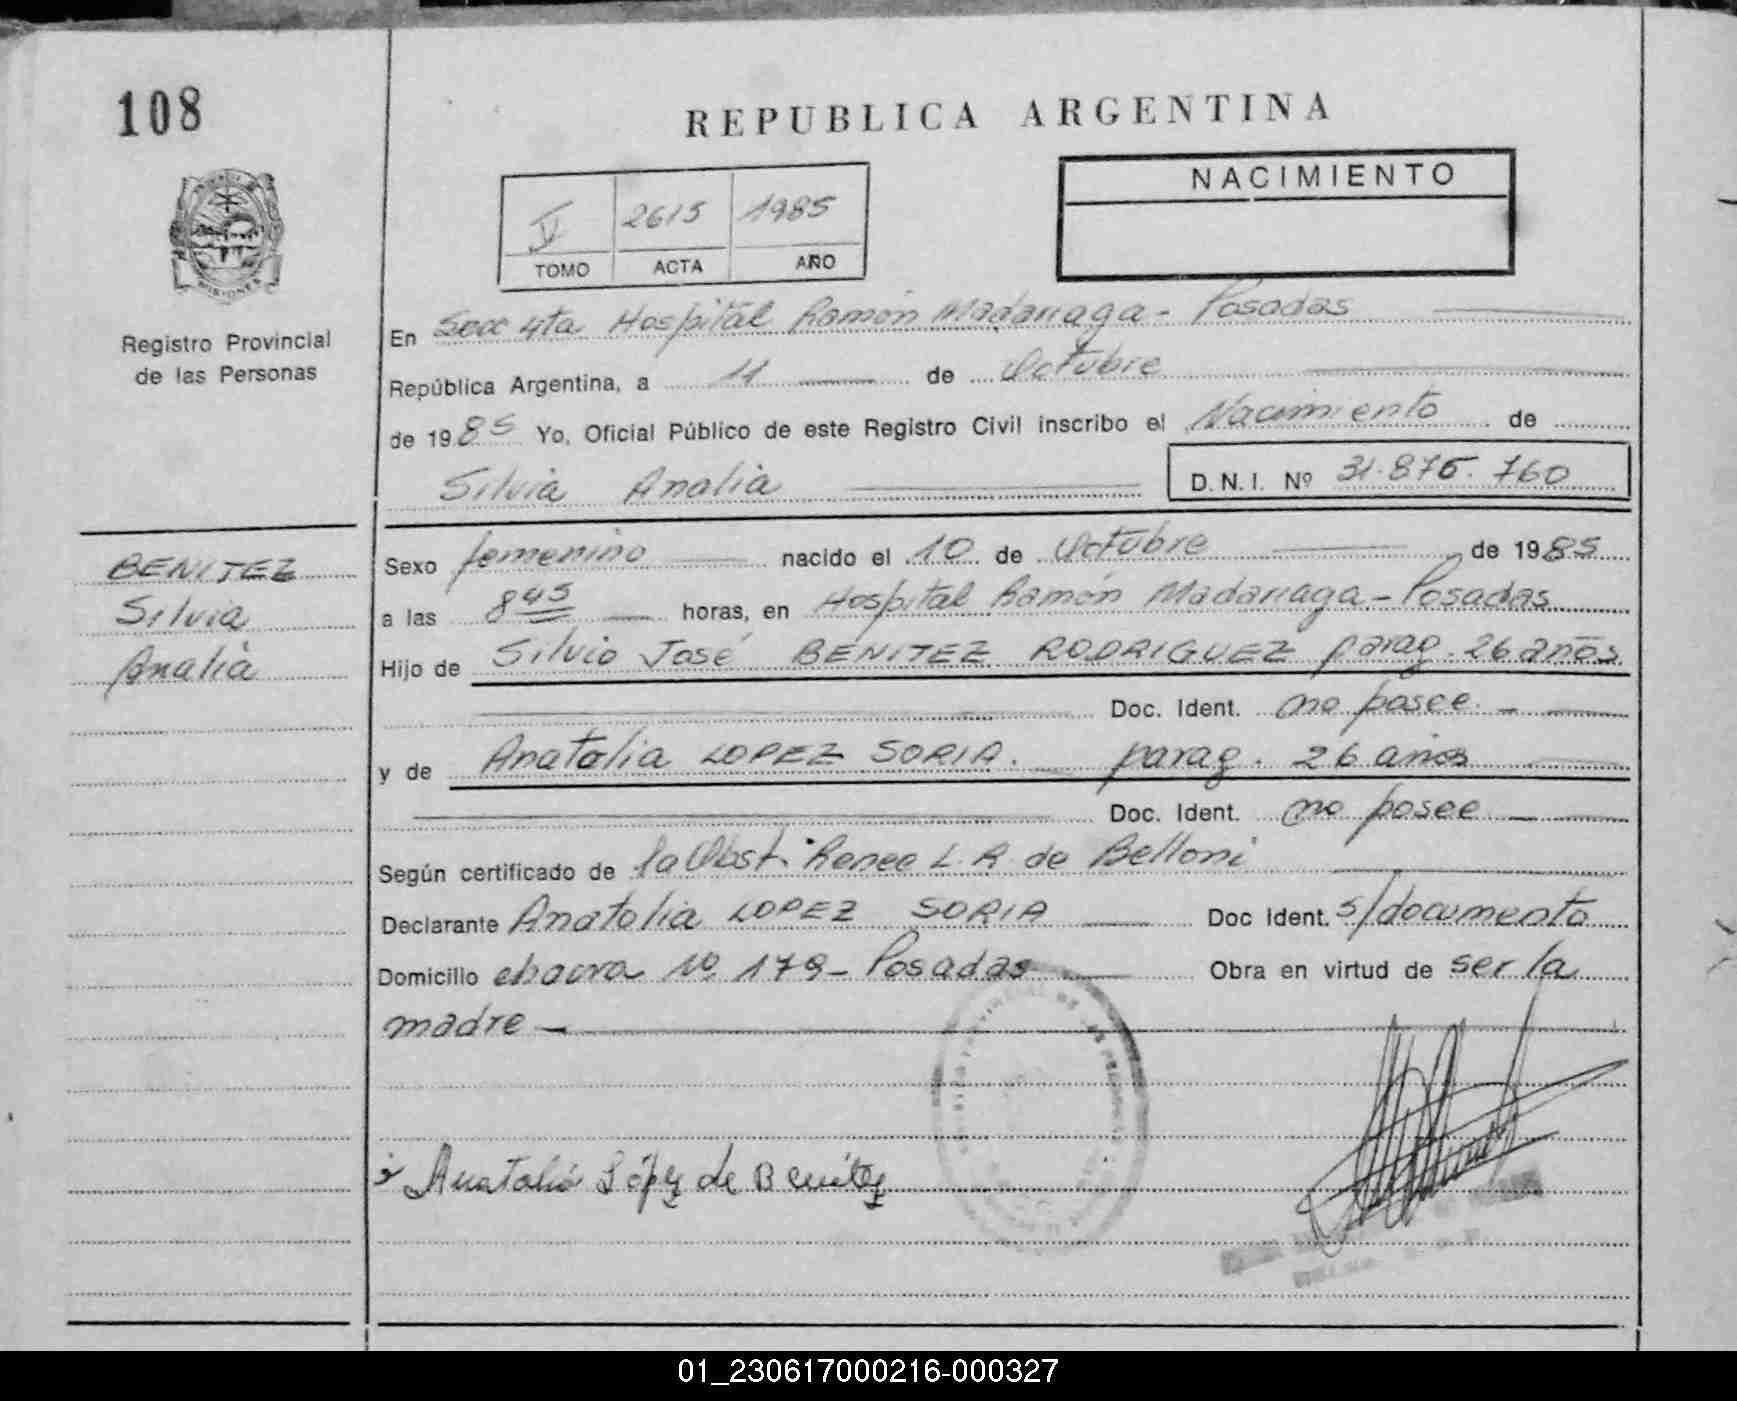 108
REPUBLICA ARGENTINA
V 2615 1985
TOMO ACTA AÑO
NACIMIENTO
MISIONES
Registro Provincial
de las Personas
En Secc 4ta Hospital Ramón Madariaga - Posadas
República Argentina, a 11 de Octubre
de 1985 Yo, Oficial Público de este Registro Civil inscribo el Nacimiento de
Silvia Analia D.N.I. Nº 31.876.760
BENITEZ
Silvia
Analia
Sexo femenino nacido el 10 de Octubre de 1985
a las 8 45 horas, en Hospital Ramón Madariaga - Posadas
Hijo de Silvio José BENITEZ RODRIGUEZ parag. 26 años
Doc. Ident. no posee.
y de Anatolia LOPEZ SORIA. parag. 26 años
Doc. Ident. no posee
Según certificado de la Obst. Renee L. R. de Belloni
Declarante Anatolia LOPEZ SORIA Doc Ident. s/documento
Domicilio chacra Nº 179 - Posadas Obra en virtud de ser la
madre
Anatolia López de Benítez
01_230617000216-000327